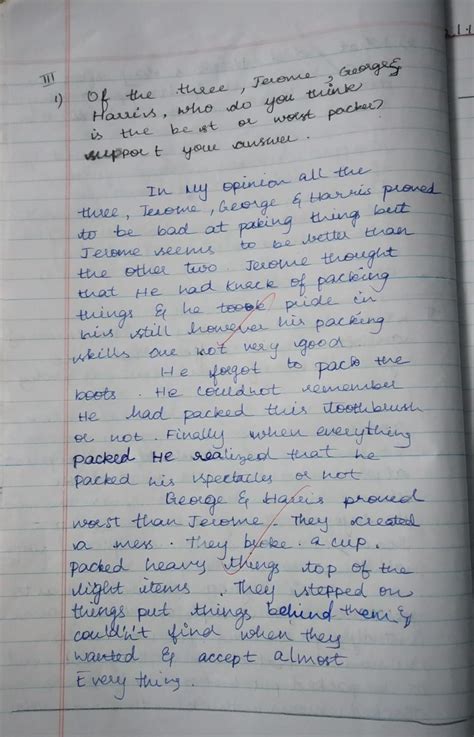 III
1) Of the three, Jerome, George &
Harris, who do you think
is the best or worst packer?
support your answer.
In My opinion all the
three, Jerome, George & Harris proved
to be bad at paking thing but
Jerome seems to be better than
the other two. Jerome thought
that He had knack of packing
things & he took pride in
his still however his packing
skills are not very good.
He forgot to pack the
boots. He couldnot remember
He had packed this toothbrush
or not. Finally when everything
packed He realized that he
packed his spectacles or not
George & Harris proved
worst than Jerome. They created
a mess. They broke a cup.
packed heavy things top of the
light items. They stepped on
things put things behind them &
couldn't find when they
wanted & accept almost
Every thing.